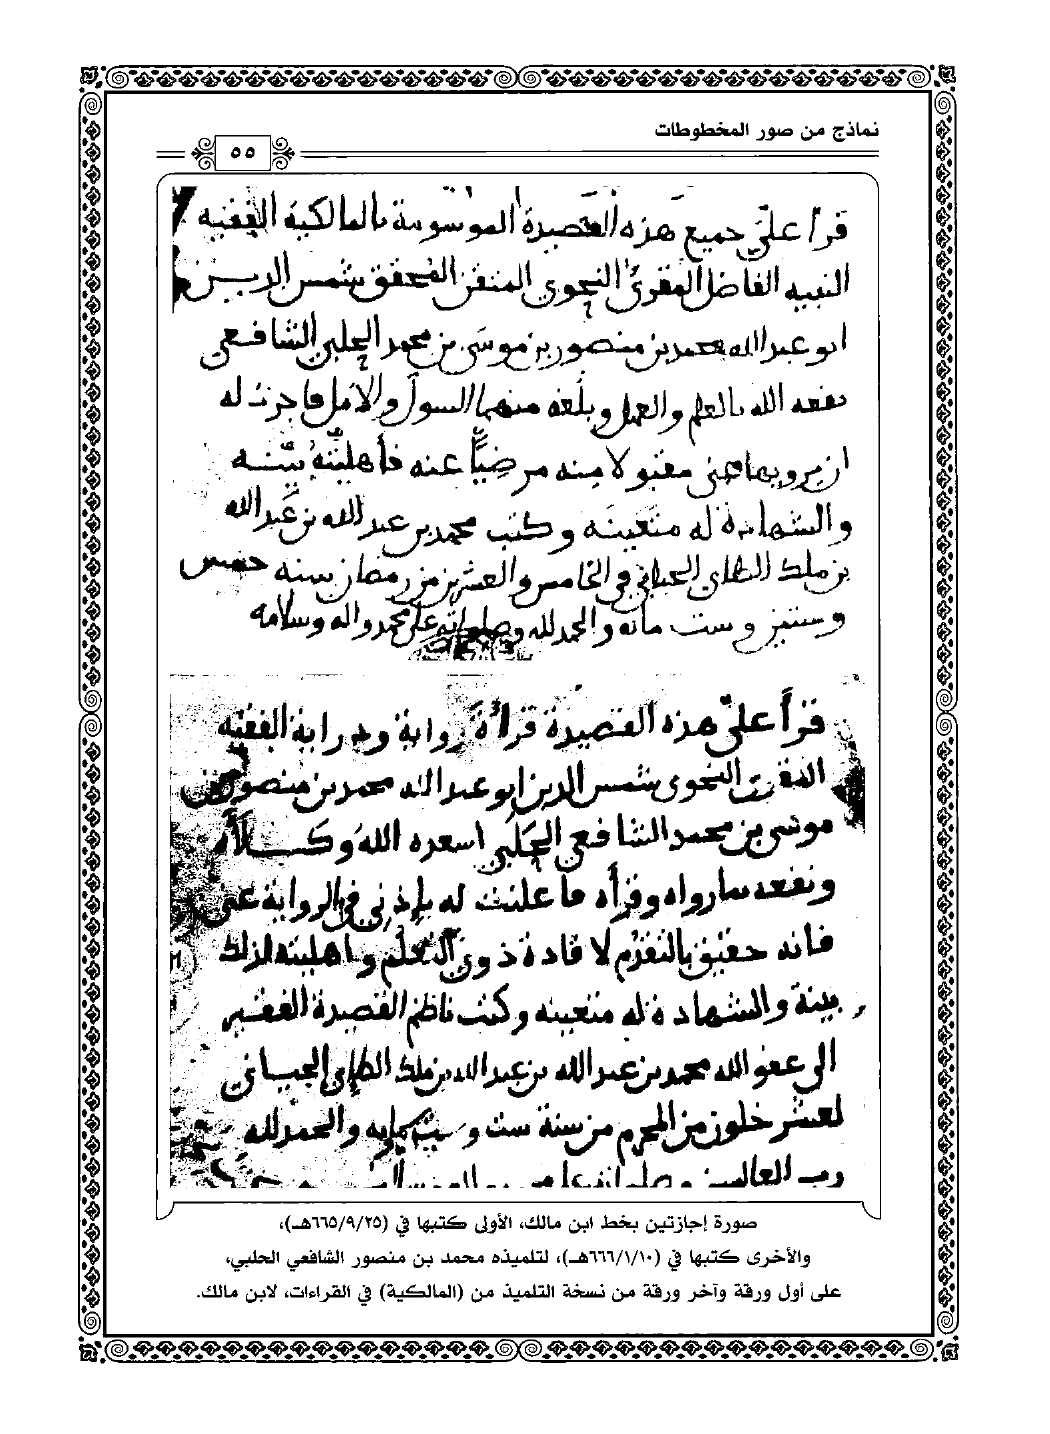 نماذج من صور المخطوطات
٥٥
قرأ عليّ جميع هذه القصيدة الموسومة بالمالكية الفقيه
النبيه الفاضل المقرئ النحوي المتقن المحقق شمس الدين
ابو عبد الله محمد بن منصور بن موسَى بن محمد الحلبي الشافعي
نفعه الله بالعلم والعمل وبلّغه منهما السول والامل فاجزت له
ان يرويها عني مقبولا منه مرضيًّا عنه فأهليّتُهُ بيّنَه
والشهادة له متعينَه وكتب محمد بن عبد الله بن عَبد الله
بن ملك الطاي الجياني في الخامس والعشرين من رمضان سنه خمس
وستين وست مائه والحمد لله وصلواته على محمد واله وسلامه
قرأ عليّ هذه القصيدة قرأةَ رواية ودراية الفقيه
المقرئ النحوى شمس الدين ابو عبد الله محمد بن منصور بن
موسَى بن محمد الشافعي الحَلَبي اسعده اللهَ وكَـلأه
ونفعه بما رواه وقرأه فاعلنت له بإذني في الرواية عني
فانه حقيق بالتقدم لا فادة ذوي التعلم واهليته لذلك
بينة والشهادة له متعينه وكتب ناظم القصيدة الفقير
الى عفو الله محمد بن عبد الله بن عبد الله بن ملك الطاي الجياني
لعشر خلون من المحرم من سنة ست وستين وستمايه والحمد لله
رب العالمين وصلواته على
صورة إجازتين بخط ابن مالك، الأولى كتبها في (٦٦٥/٩/٢٥هـ)،
والأخرى كتبها في (٦٦٦/١/١٠هـ)، لتلميذه محمد بن منصور الشافعي الحلبي،
على أول ورقة وآخر ورقة من نسخة التلميذ من (المالكية) في القراءات، لابن مالك.